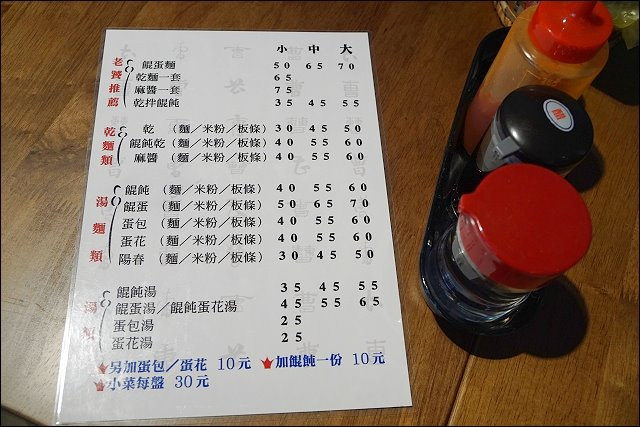 小 中 大
老饕推薦
餛蛋麵 50 65 70
乾麵一套 65
麻醬一套 75
乾拌餛飩 35 45 55
乾麵類
乾 （麵／米粉／板條） 30 45 50
餛飩乾 （麵／米粉／板條） 40 55 60
麻醬 （麵／米粉／板條） 40 55 60
湯麵類
餛飩 （麵／米粉／板條） 40 55 60
餛蛋 （麵／米粉／板條） 50 65 70
蛋包 （麵／米粉／板條） 40 55 60
蛋花 （麵／米粉／板條） 40 55 60
陽春 （麵／米粉／板條） 30 45 50
湯類
餛飩湯 35 45 55
餛蛋湯／餛飩蛋花湯 45 55 65
蛋包湯 25
蛋花湯 25
另加蛋包／蛋花 10元 加餛飩一份 10元
小菜每盤 30元